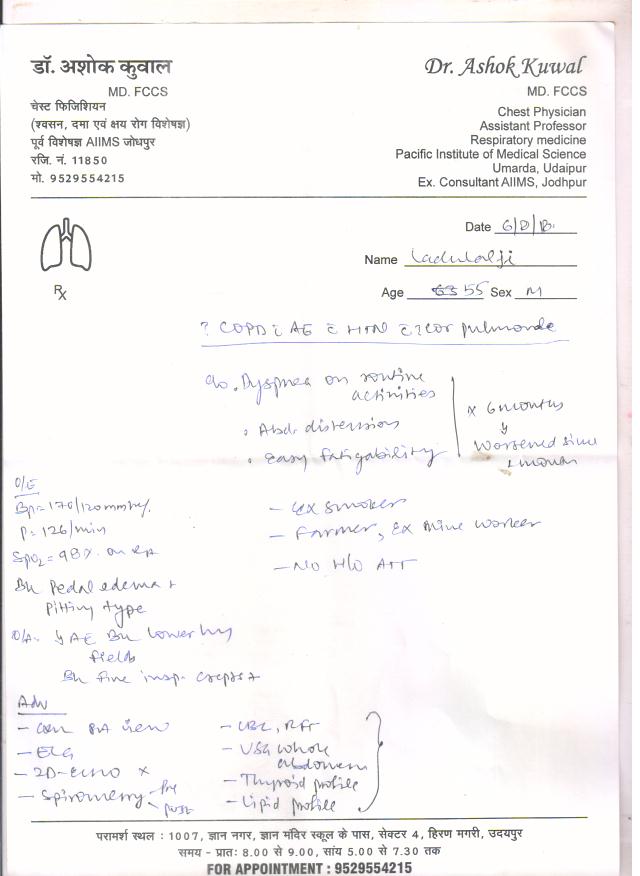 डॉ. अशोक कुवाल
MD. FCCS
चेस्ट फिजिशियन
(श्वसन, दमा एवं क्षय रोग विशेषज्ञ)
पूर्व विशेषज्ञ AIIMS जोधपुर
रजि. नं. 11850
मो. 9529554215
Dr. Ashok Kuwal
MD. FCCS
Chest Physician
Assistant Professor
Respiratory medicine
Pacific Institute of Medical Science
Umarda, Udaipur
Ex. Consultant AIIMS, Jodhpur
Date
Name Ladulalji
Rx
Age 55 Sex M
? COPD c̄ AE c̄ HTN c̄ ? cor pulmonale
c/o . Dyspnea on routine
activities
. Abd. distension
. Easy fatigability
x 6 months
Worsened since
month
O/E
BP = 170/120 mmHg.
P = 126/min
SpO2 = 98%. on
B/L Pedal edema +
Pitting type
O/A. ↓ AE B/L lower
fields
B/L fine insp. crepts +
- Ex smoker
- Farmer, Ex Mine worker
- No H/o ATT
Adv
- PA view
- ECG
- 2D-ECHO x
- Spirometry - Pre
post
- CBC, RFT
- USG whole
abdomen
- Thyroid profile
- Lipid profile
परामर्श स्थल : 1007, ज्ञान नगर, ज्ञान मंदिर स्कूल के पास, सेक्टर 4, हिरण मगरी, उदयपुर
समय - प्रातः 8.00 से 9.00, सांय 5.00 से 7.30 तक
FOR APPOINTMENT : 9529554215